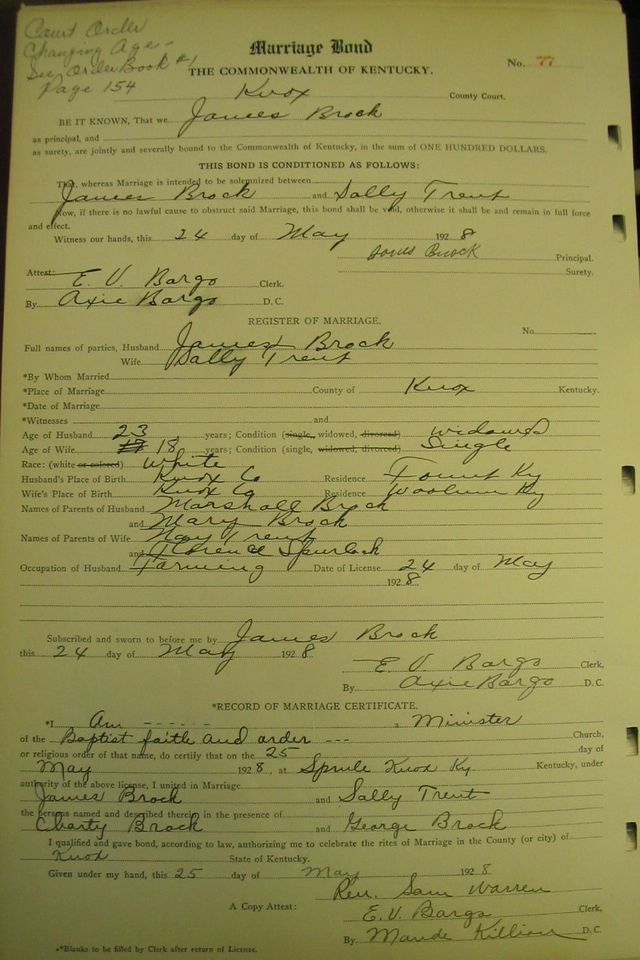 Court Order
Changing Age -
See Order Book #1
Page 154
Marriage Bond
THE COMMONWEALTH OF KENTUCKY.
No. 77
Knox County Court.
BE IT KNOWN, That we James Brock
as principal, and
as surety, are jointly and severally bound to the Commonwealth of Kentucky, in the sum of ONE HUNDRED DOLLARS.
THIS BOND IS CONDITIONED AS FOLLOWS:
That, whereas Marriage is intended to be solemnized between
James Brock and Sally Trent
Now, if there is no lawful cause to obstruct said Marriage, this bond shall be void, otherwise it shall be and remain in full force
and effect.
Witness our hands, this 24 day of May 1928
Brock Principal.
Surety.
Attest: E. V. Bargo Clerk.
By Axie Bargo D. C.
REGISTER OF MARRIAGE.
No.
Full names of parties, Husband James Brock
Wife Sally Trent
*By Whom Married
*Place of Marriage County of Knox Kentucky.
*Date of Marriage
*Witnesses and
Age of Husband 23 years; Condition (single, widowed, divorced) widowed
Age of Wife 17 18 years; Condition (single, widowed, divorced) Single
Race: (white or colored) White
Husband's Place of Birth Knox Co Residence Fount Ky
Wife's Place of Birth Knox Co Residence Woolum Ky
Names of Parents of Husband Marshall Brock
and Mary Brock
Names of Parents of Wife Trent
and Florence Spurlock
Occupation of Husband Farming Date of License 24 day of May
1928
Subscribed and sworn to before me by James Brock
this 24 day of May 1928
E. V. Bargo Clerk,
By Axie Bargo D. C.
*RECORD OF MARRIAGE CERTIFICATE.
*I Am ----- a Minister
of the Baptist faith and order --- Church,
or religious order of that name, do certify that on the 25 day of
May 1928, at Sprule Knox Ky. Kentucky, under
authority of the above license, I united in Marriage
James Brock and Sally Trent
the persons named and described therein in the presence of
Charty Brock and George Brock
I qualified and gave bond, according to law, authorizing me to celebrate the rites of Marriage in the County (or city) of
Knox State of Kentucky.
Given under my hand, this 25 day of May 1928
Rev. Sam Warren
A Copy Attest: E. V. Bargo Clerk,
By Maude Killion D. C.
**Blanks to be filled by Clerk after return of License.